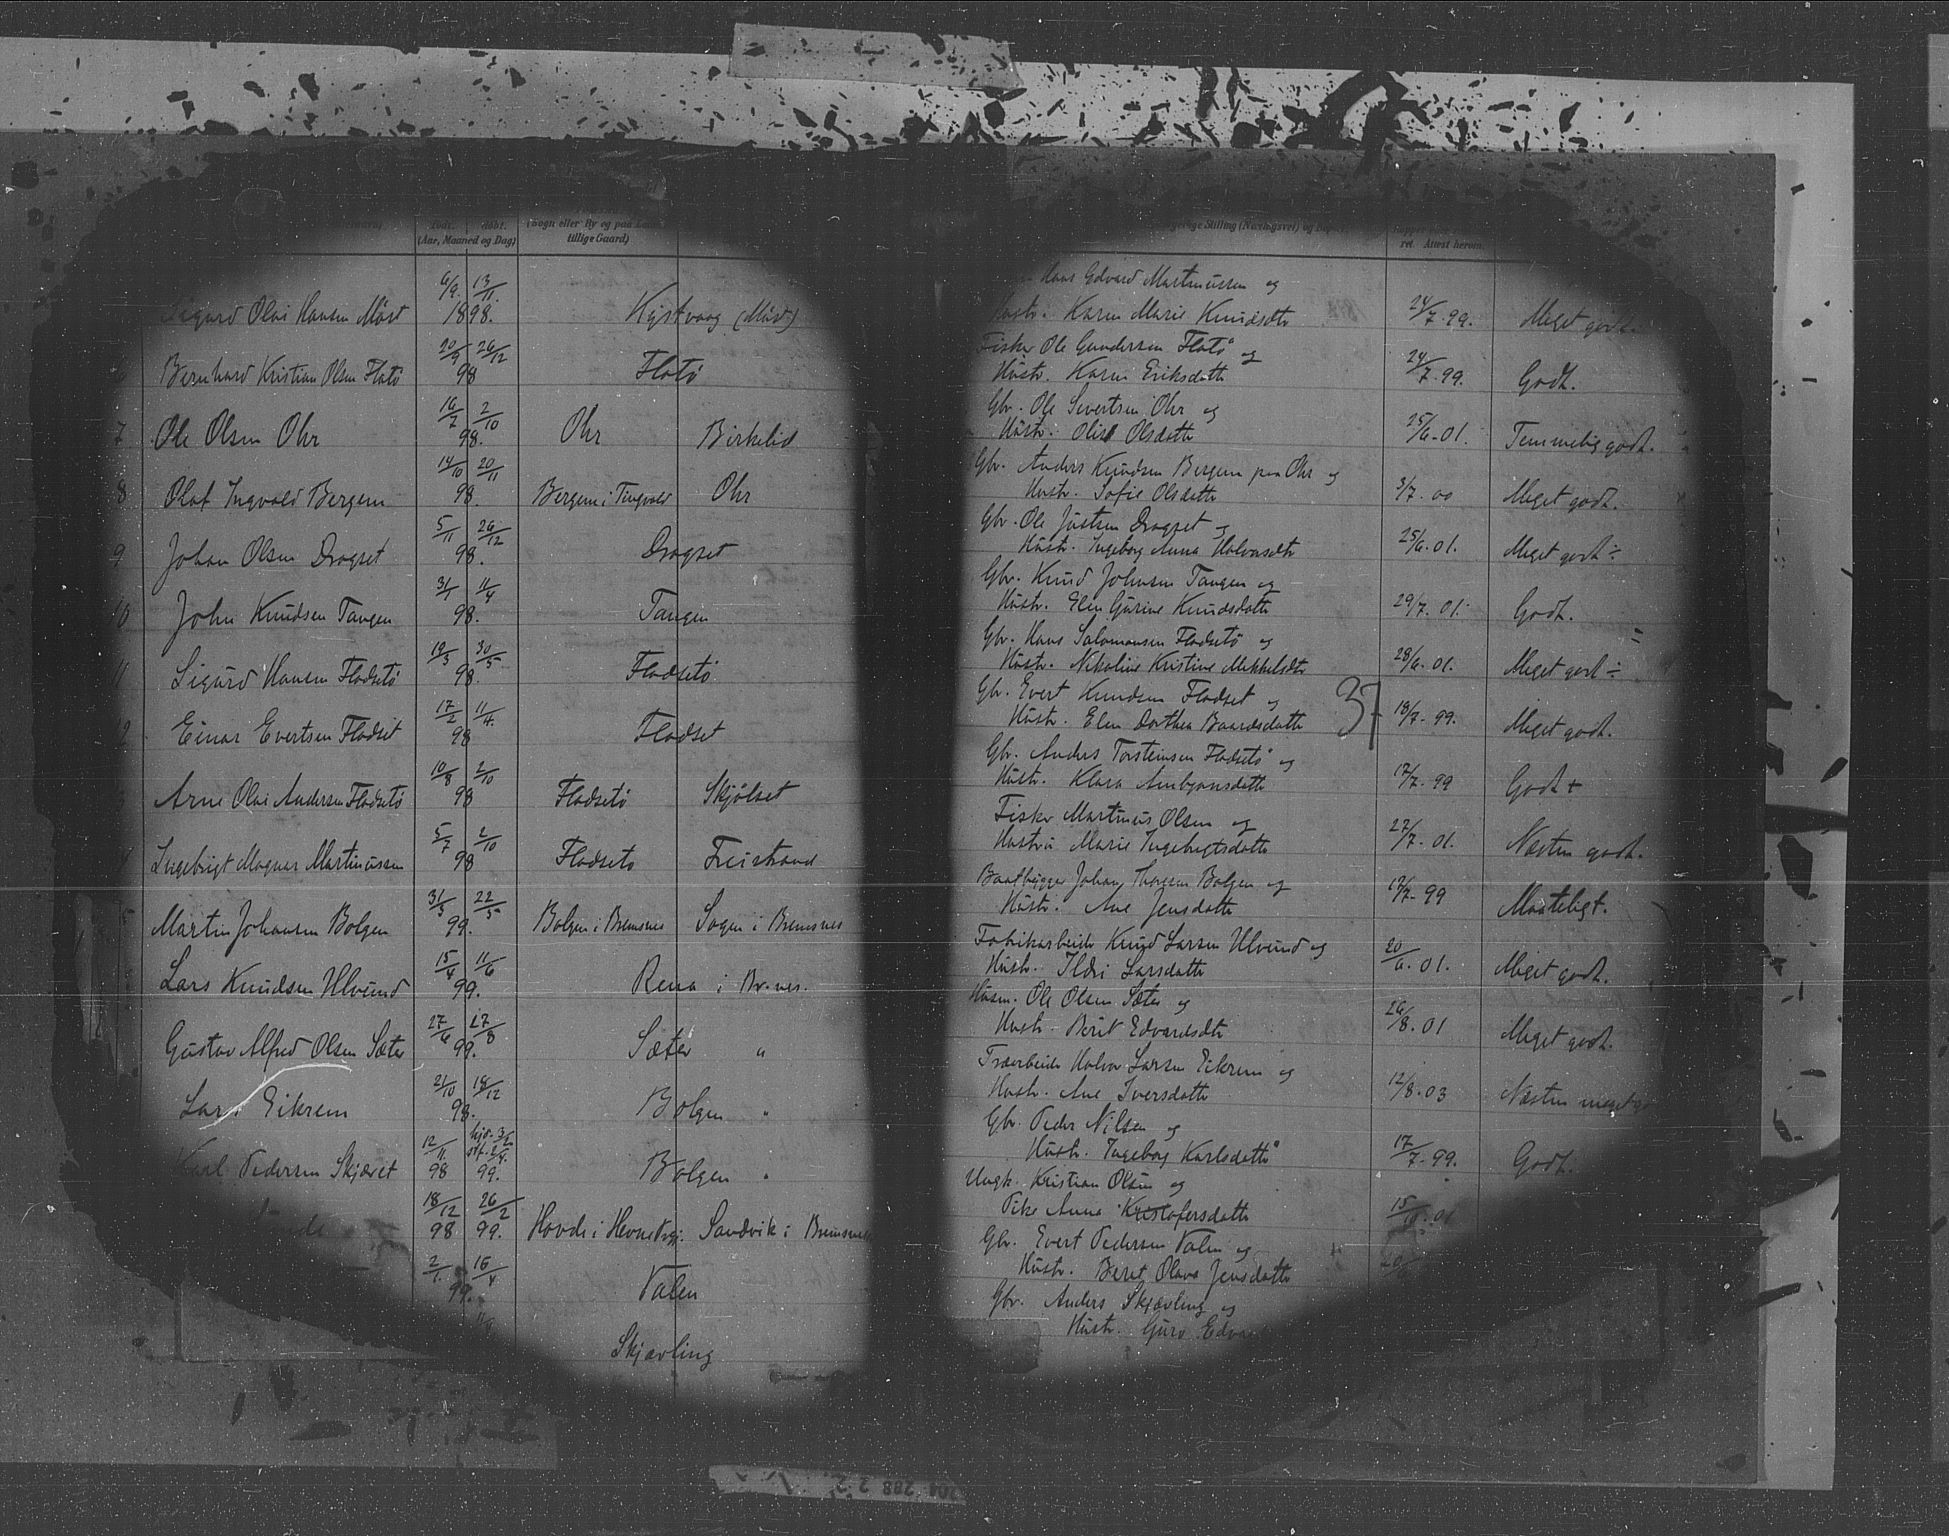 Født. Døbt.
(Aar, Maaned og Dag)
(Sogn eller By og paa
tillige Gaard)
Stilling (Næringsvei) og
ret. Attest herom.
6/9. 13/11.
Sigurd Olai Hansen Møst 1898. Kystvaag (Møst)
20/9 26/12
Bernhard Kristian Olsen Flatø 98 Flatø
16/2 2/10
7 Ole Olsen Ohr 98. Ohr Birkelid
14/10 20/11
8 Olaf Ingvald Bergem 98. Bergem i Tingvold Ohr
5/11 26/12
9 Johan Olsen Dragset 98. Dragset
3/1 11/4
10 John Knudsen Tangen 98. Tangen
19/3 30/5
11 Sigurd Hansen Fladsetø 98. Fladsetø
17/2 11/4.
Einar Evertsen Fladset 98 Fladset
10/8 2/10
Arne Olai Andersen Fladsetø 98 Fladsetø Skjølset
5/7 2/10
Ingebrigt Magnar Martinussen 98 Fladsetø Freistrand
3/3 22/5
Martin Johansen Bolgen 99. Bolgen i Bremsnes Sogen i Bremsnes
15/4 11/6
Lars Knudsen Ulvund 99. Rena i Br.nes.
27/6 27/8
Gustav Alfred Olsen Sæter 99. Sæter "
21/10 18/12
Lars Eikrem 98. Bolgen "
12/11. hjd. 3/2
Karl Pedersen Skjæret 98 99. Bolgen "
18/12 26/2
98 99. Hovde i Hevne Sandvik i Bremsnes
2/1. 16/4
99. Valen
Skjævling
Hans Edvard Martinussen og
Hustr. Karen Marie Knudsdtr 24/7.99. Meget godt.
Fisker Ole Gundersen Flatø og
Hustr. Karen Eriksdatter 24/7.99. Godt.
Gbr. Ole Sivertsen Ohr og
Hustr. Olsdatter 25/6.01. Temmelig godt.
Gbr. Anders Knudsen Bergem paa Ohr og
Hustr. Sofie Olsdatter 3/7.00 Meget godt.
Gbr. Ole Justsen Dragset og
Hustr. Ingeborg Anna Halvorsdtr 25/6.01. Meget godt ÷
Gbr. Knud Johnsen Tangen og
Hustr. Elen Gurine Knudsdatter 29/7.01. Godt.
Gbr. Hans Salomonsen Fladsetø og
Hustr. Nikoline Kristine Mikkelsdtr 28/6.01. Meget godt ÷
Gbr. Evert Knudsen Fladset og
Hustr. Elen Dorthea Baardsdatter 37 18/7.99. Meget godt.
Gbr. Anders Torsteinsen Fladsetø og
Hustr. Klara Arnbjønsdatter 17/7.99 Godt +
Fisker Martinus Olsen og
Hustru Marie Ingebrigtsdatter 27/7.01. Næsten godt.
Baatbygger Johan Thoresen Bolgen og
Hustr. Ane Jensdatter 17/7.99 Maateligt.
Fabrikarbeider Knud Larsen Ulvund og
Hustr. Ildri Larsdatter 20/6.01. Meget godt.
Husm. Ole Olsen Sæter og
Hustr. Berit Edvardsdtr 26/8.01 Meget godt.
Træarbeider Halvor Larsen Eikrem og
Hustr. Ane Iversdatter 12/8.03 Næsten meget
Gbr. Peder Nilsen og
Hustr. Ingeborg Karlsdatter 17/7.99. Godt.
Ungk. Kristian Olsen og
Pike Anna Kristofersdatter 15/10.01
Gbr. Evert Pedersen Valen og
Hustr. Beret Olava Jensdatter
Gbr. Anders Skjævling og
Hustr. Guro
204 288 2 2